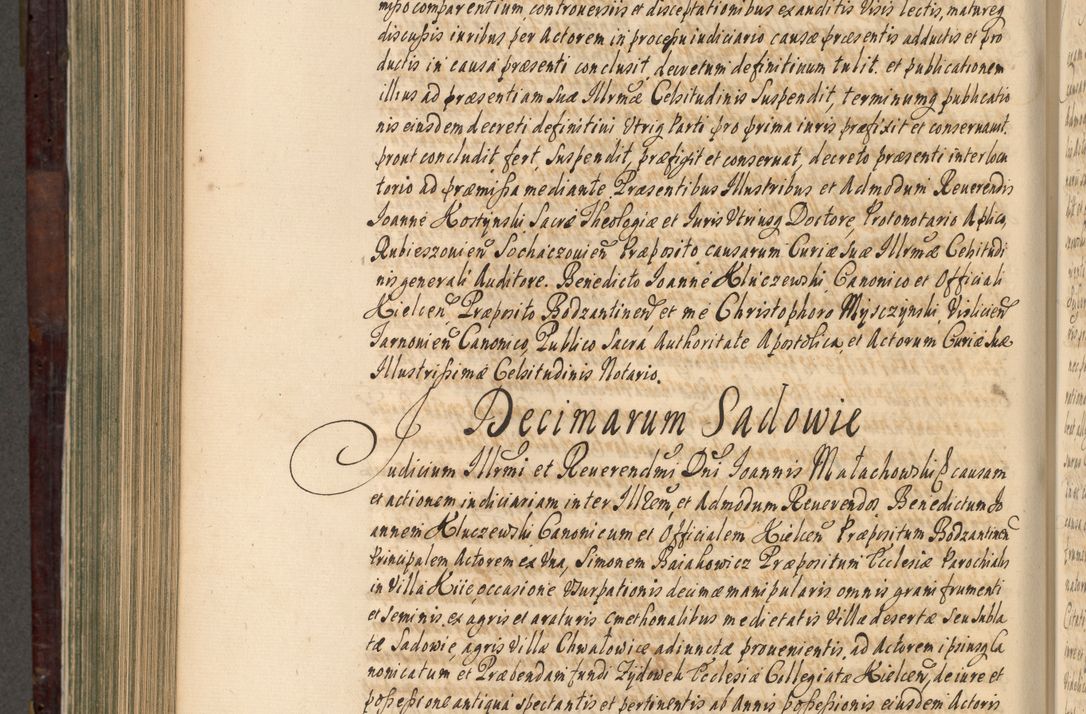 misso comparentium, controversiis et disceptationibus exauditis Visis lectis, matureq
discussis iuribus per Actorem in processu iudiciario causæ præsentis adductis et pro
ductis in causa præsenti conclusit, decretum definitivum tulit. et publicationem
illius ad præsentiam Suæ Illrmæ Celsitudinis Suspendit, terminumq publicatio
nis eiusdem decreti definitivi Utriq Parti pro prima iuris præfixit et conservavit.
prout concludit, fert, Suspendit, præfigit et conservat, decreto præsenti interlocu
torio ad præmissa mediante. Præsentibus Illustribus et Admodum Reverendis
Joanne Kostynski Sacræ Theologiæ et Iuris Utriusq Doctore, Protonotario Aplico,
Rubieszovien Sochaczovien Præposito, causarum Curiæ Suæ Illrmæ Celsitudi
nis generali Auditore. Benedicto Joanne Kluczewski Canonico et Officiali
Kielcen, Præposito Bodzantinen et me Christophoro Mysczynski, Vislicien
Tarnovien Canonico, Publico Sacra Authoritate Apostolica, et Actorum Curiæ Suæ
Illustrissimæ Celsitudinis Notario.
Decimarum Sadowie
Judicium Illrmi et Reverendmi Dni Joannis Małachowski ß causam
et actionem iudiciariam inter Illrem et Admodum Reverendos. Benedictum Jo
annem Kluczewski Canonicum et Officialem Kielcen Præpositum Bodzantinen
Principalem Actorem ex Una, Simonem Baiakowicz Præpositum Ecclesiæ Parochialis
in Villa Kiie, occasione Usurpationis decimæ manipularis omnis grani frumenti
et seminis, ex agris et araturis cmethonalibus medietatis Villæ desertæ Seu Subla
tæ Sadowie, agris Villæ Chwalowice adiunctæ provenientis, ad Actorem ipsiusq Ca
nonicatum et Præbendam fundi Zydowek Ecclesiæ Collegiatæ Kielcen, de iure et
possessione antiqua spectantis et pertinentis ab Annis possessionis eiusdem Actoris